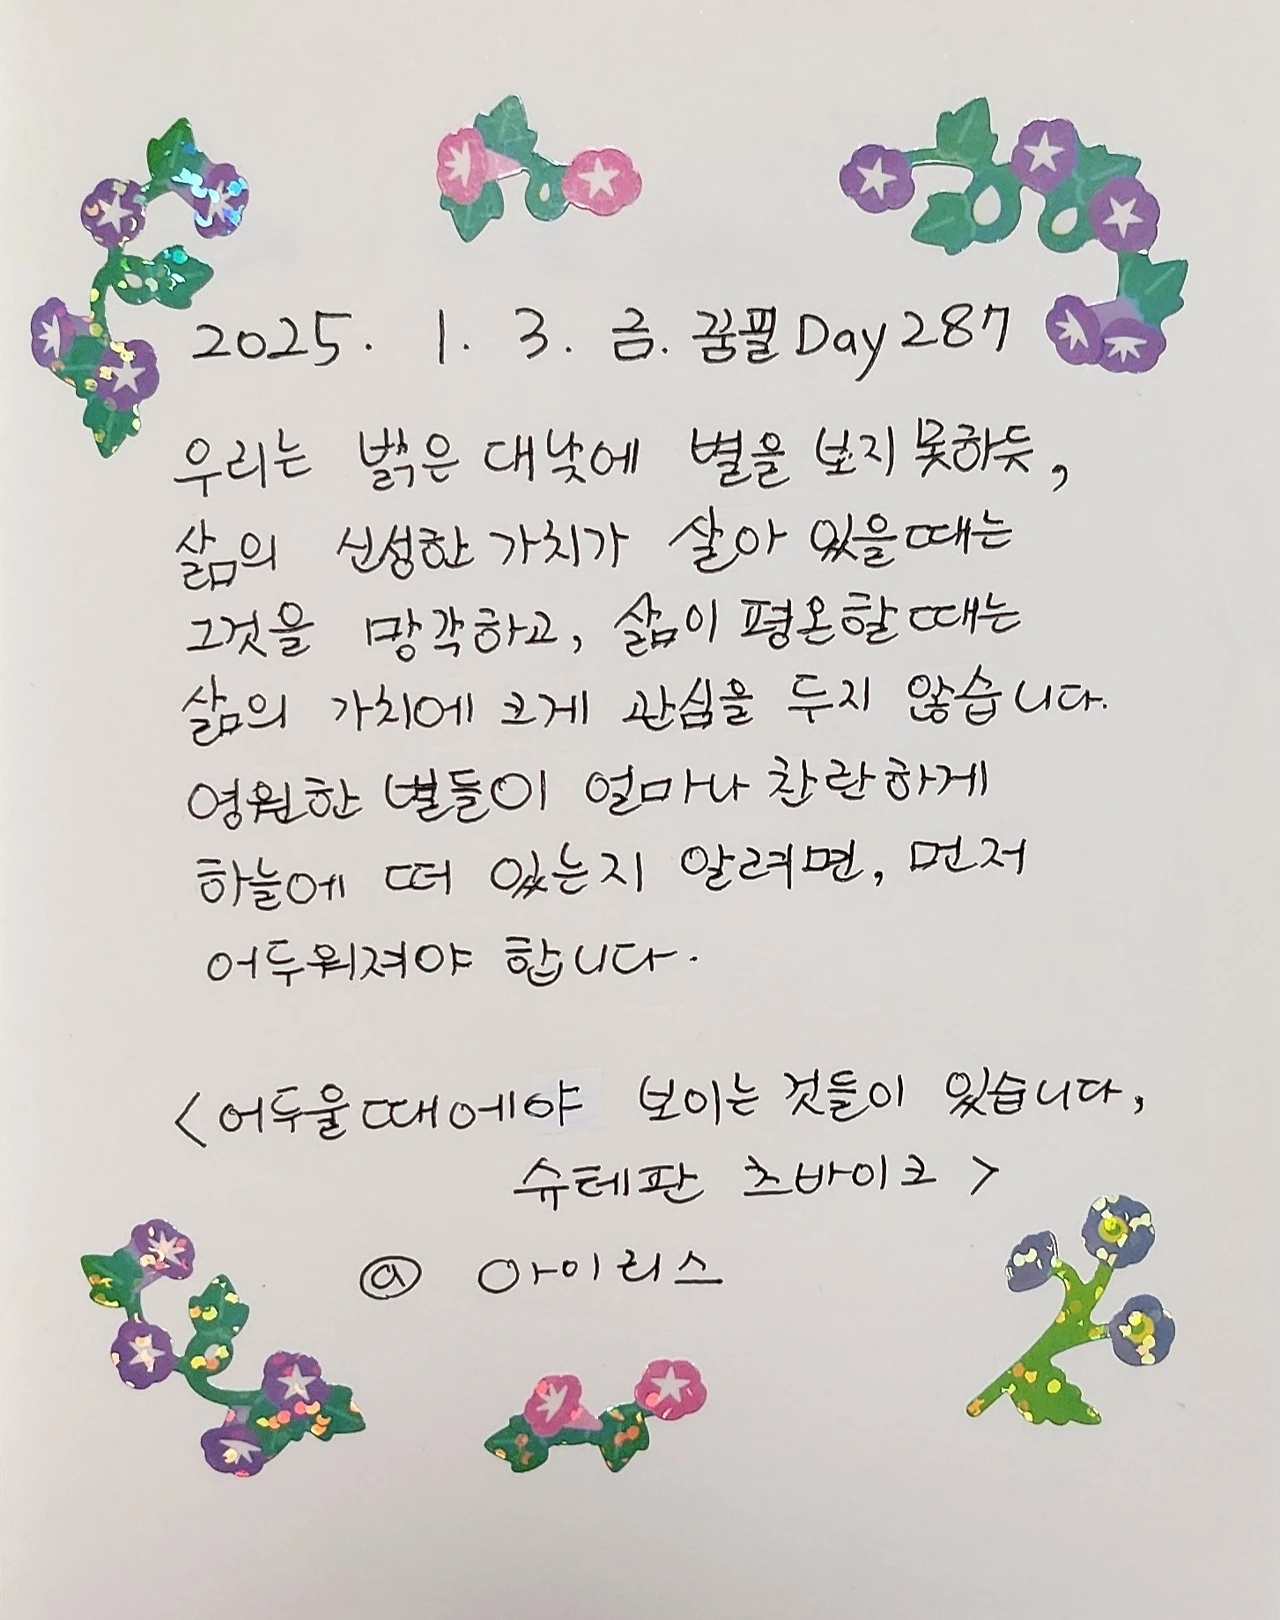 2025. 1. 3. 금. 꿈필 Day 287
우리는 밝은 대낮에 별을 보지 못하듯,
삶의 신성한 가치가 살아 있을 때는
그것을 망각하고, 삶이 평온할 때는
삶의 가치에 크게 관심을 두지 않습니다.
영원한 별들이 얼마나 찬란하게
하늘에 떠 있는지 알려면, 먼저
어두워져야 합니다.
<어두울 때에야 보이는 것들이 있습니다,
슈테판 츠바이크>
@ 아이리스